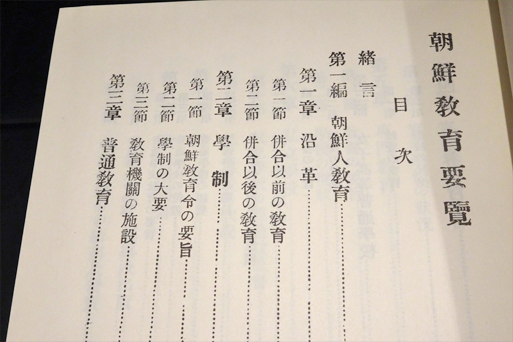 朝鮮敎育要覽
目次
緒言
第一編 朝鮮人敎育
第一章 沿革
第一節 併合以前の敎育
第二節 併合以後の敎育
第二章 學制
第一節 朝鮮敎育令の要旨
第二節 學制の大要
第三節 敎育機關の施設
第三章 普通敎育